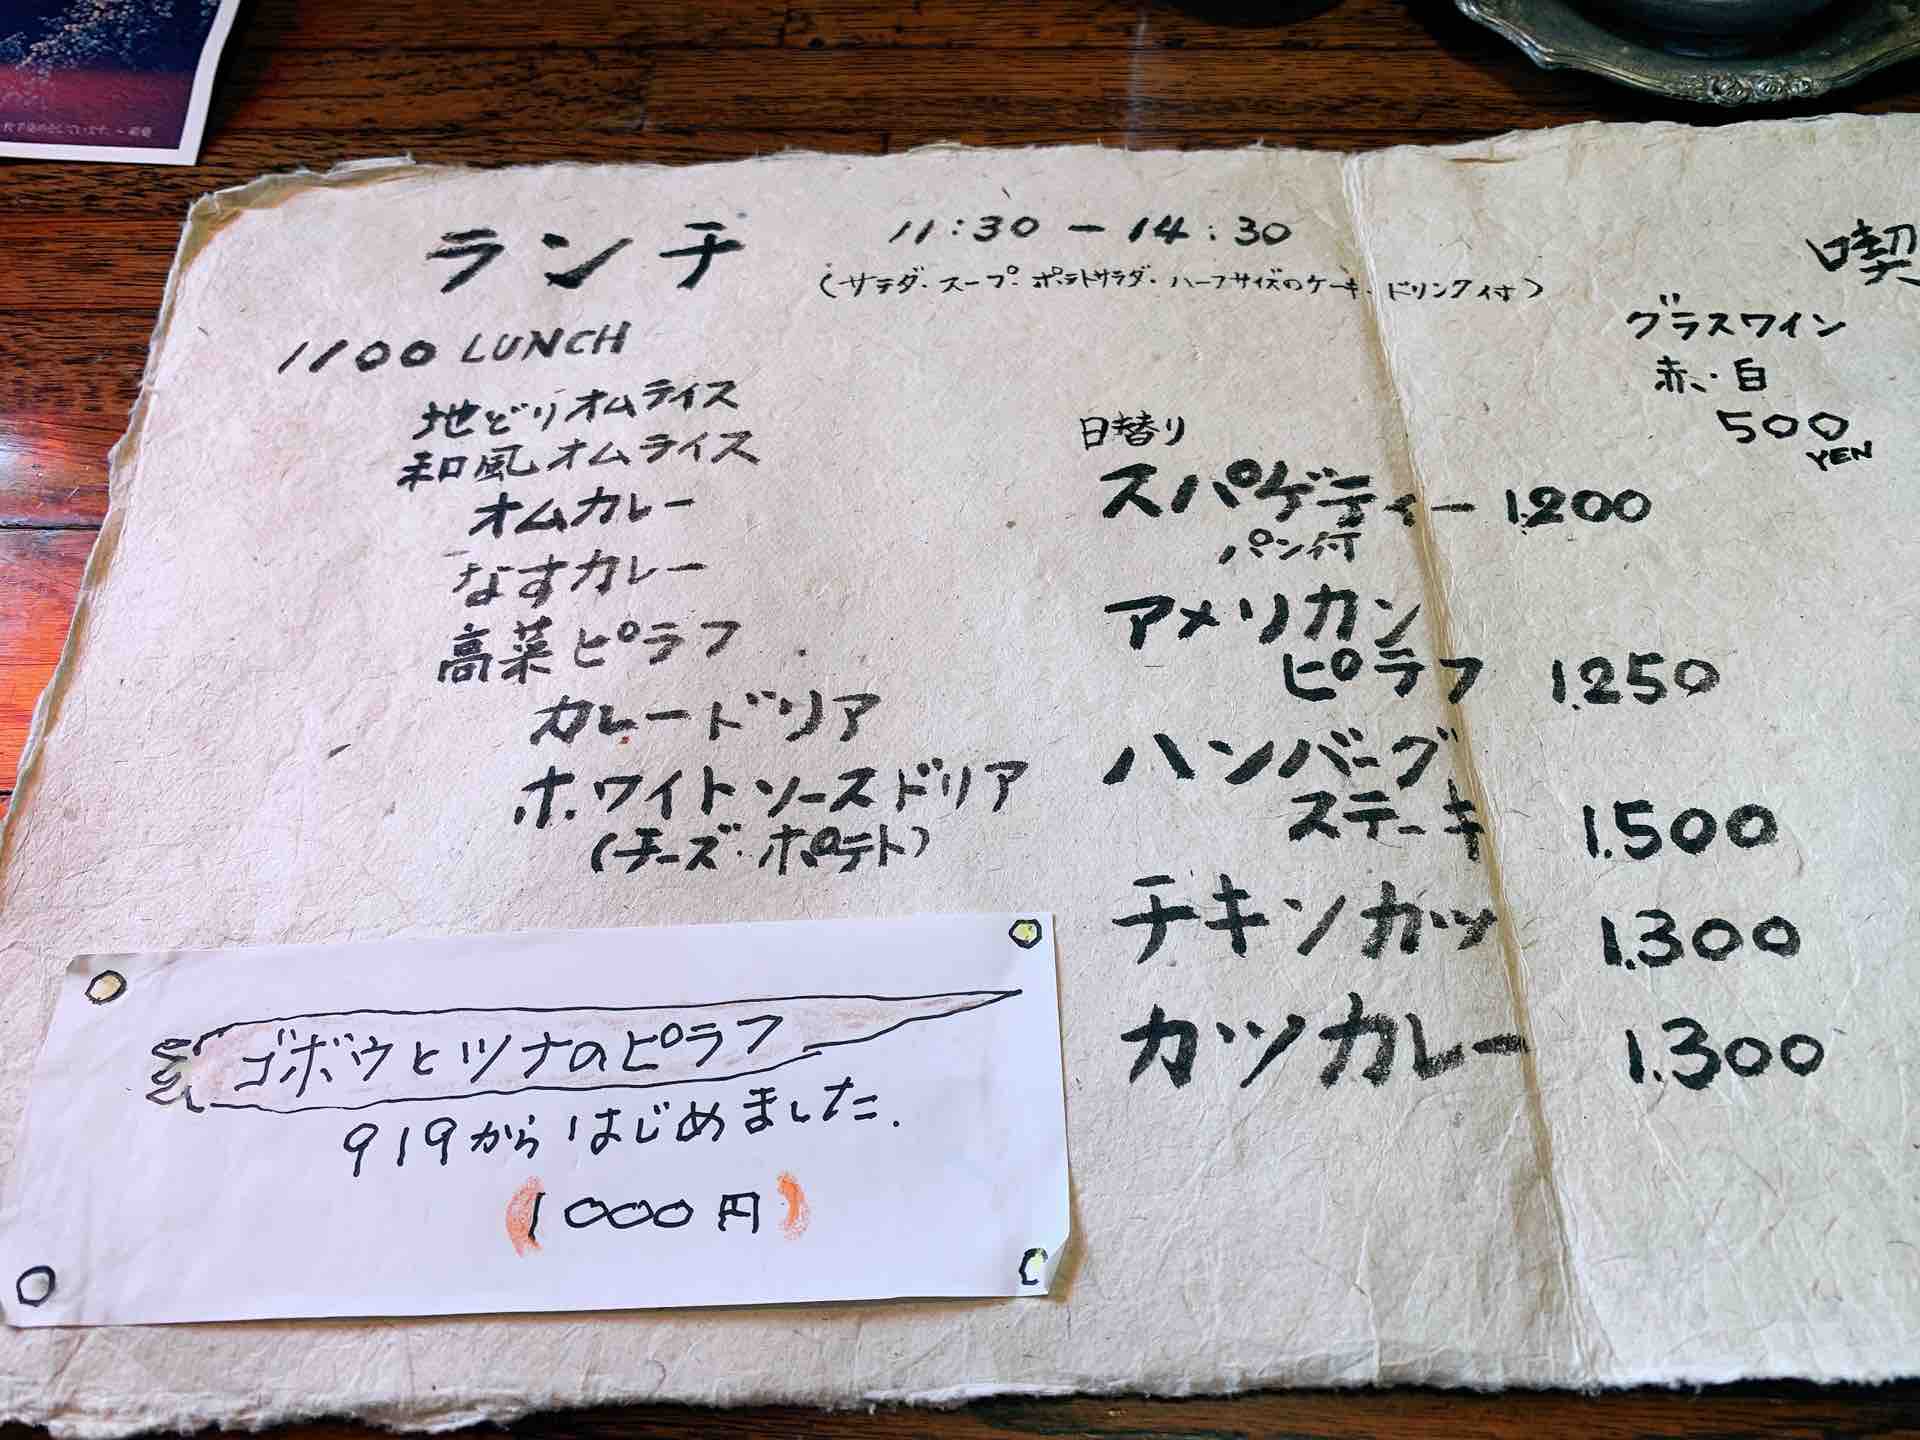 ランチ 11:30 - 14:30
(サラダ・スープ・ポテトサラダ・ハーフサイズのケーキ・ドリンク付)
1100 LUNCH
地どりオムライス
和風オムライス
オムカレー
なすカレー
高菜ピラフ
カレードリア
ホワイトソースドリア
(チーズ・ポテト)
日替り
スパゲティー 1.200
パン付
アメリカン
ピラフ 1.250
ハンバーグ
ステーキ 1.500
チキンカツ 1.300
カツカレー 1.300
喫
グラスワイン
赤・白
500
YEN
ゴボウとツナのピラフ
919からはじめました.
1000円